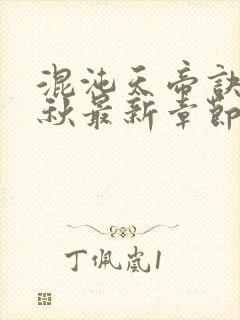 混沌天帝诀
秋最新章節
丁佩岚1